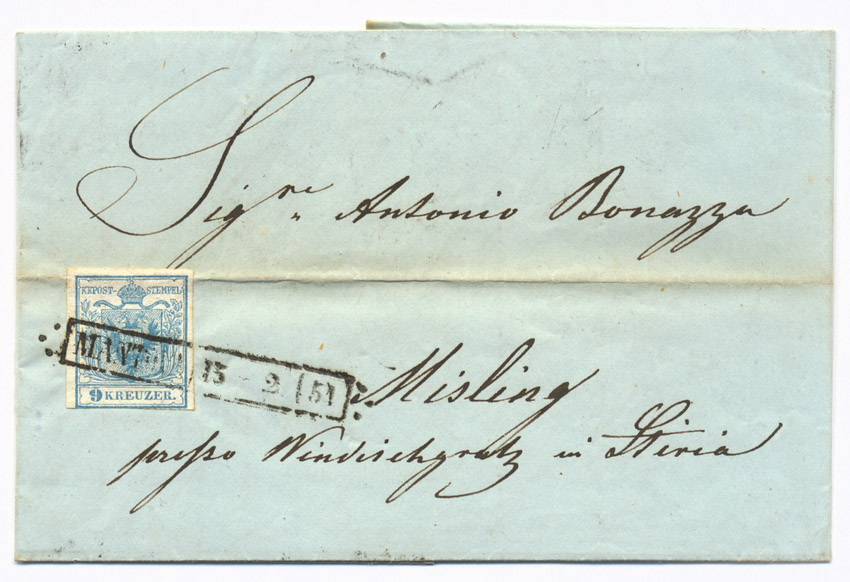 Sigre Antonio Bonazza
KKPOST-STEMPEL
9 KREUZER.
15 2 (51)
Misling
presso Windischgratz in Stiria